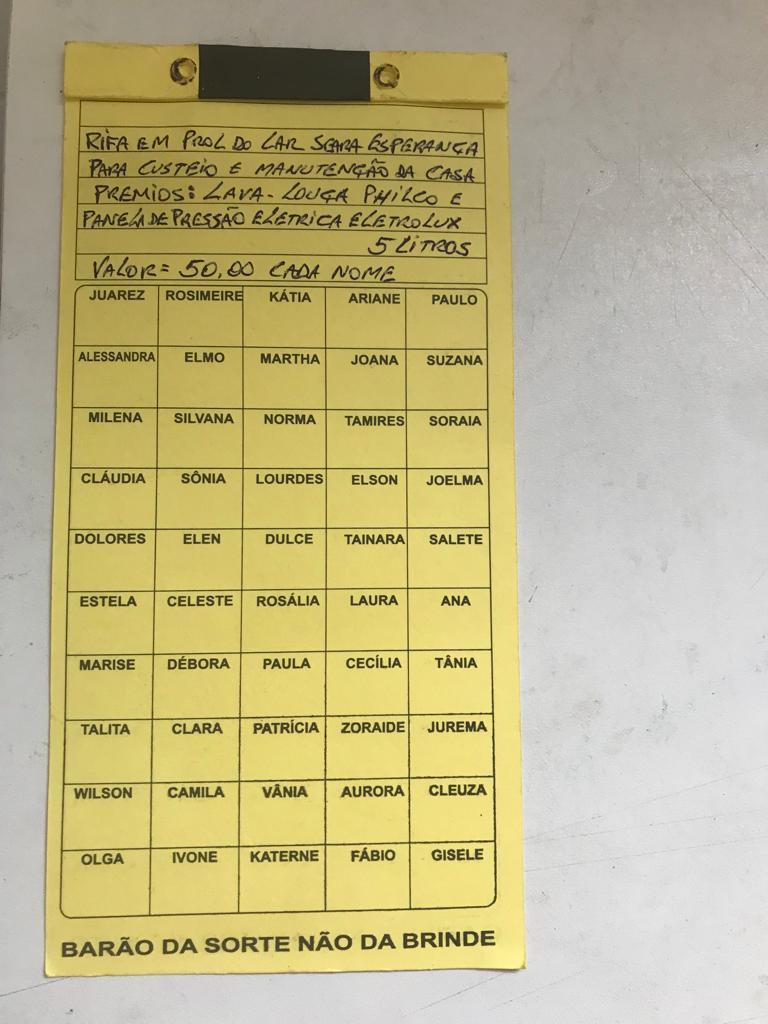 RIFA EM PROL DO LAR SEARA ESPERANÇA
PARA CUSTEIO E MANUTENÇÃO DA CASA
PREMIOS: LAVA-LOUÇA PHILCO E
PANELA DE PRESSÃO ELETRICA ELETROLUX
5 LITROS
VALOR = 50,00 CADA NOME
JUAREZ ROSIMEIRE KÁTIA ARIANE PAULO
ALESSANDRA ELMO MARTHA JOANA SUZANA
MILENA SILVANA NORMA TAMIRES SORAIA
CLÁUDIA SÔNIA LOURDES ELSON JOELMA
DOLORES ELEN DULCE TAINARA SALETE
ESTELA CELESTE ROSÁLIA LAURA ANA
MARISE DÉBORA PAULA CECÍLIA TÂNIA
TALITA CLARA PATRÍCIA ZORAIDE JUREMA
WILSON CAMILA VÂNIA AURORA CLEUZA
OLGA IVONE KATERNE FÁBIO GISELE
BARÃO DA SORTE NÃO DA BRINDE